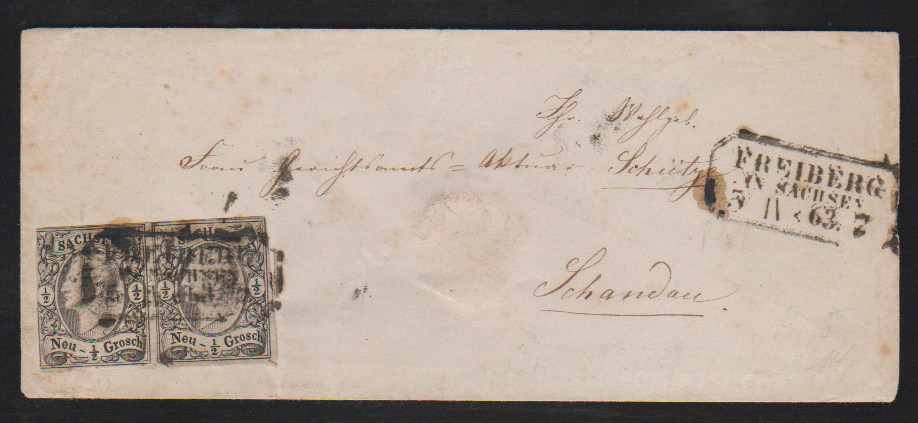 Ihr. Wohlgeb.
Frau Gerichtsamts=Aktuar Schütze
Schandau
FREIBERG
IN SACHSEN
IV 63. 7
SACHSEN
½ ½
Neu - ½ Grosch
SACHS
½ ½
Neu - ½ Grosch